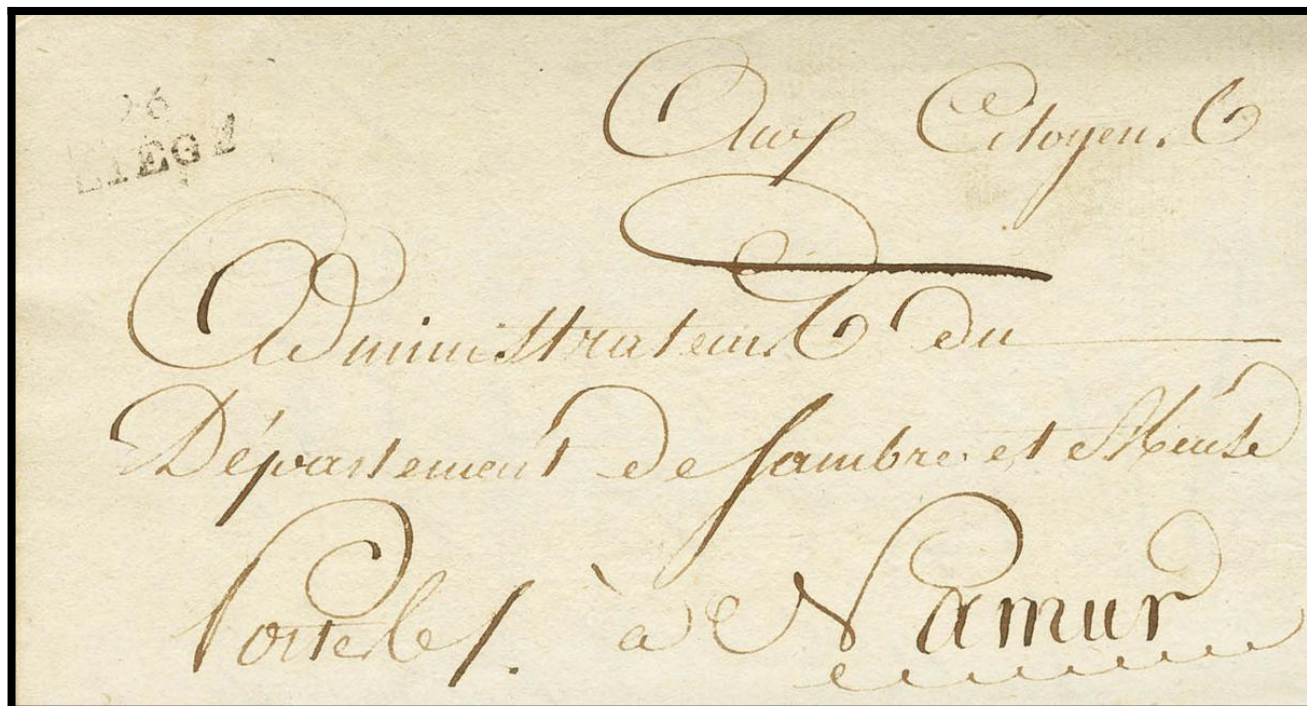 96
LIEGE
Aux Citoyens
Administrateurs du
Département de Sambre et Meuse
à Namur